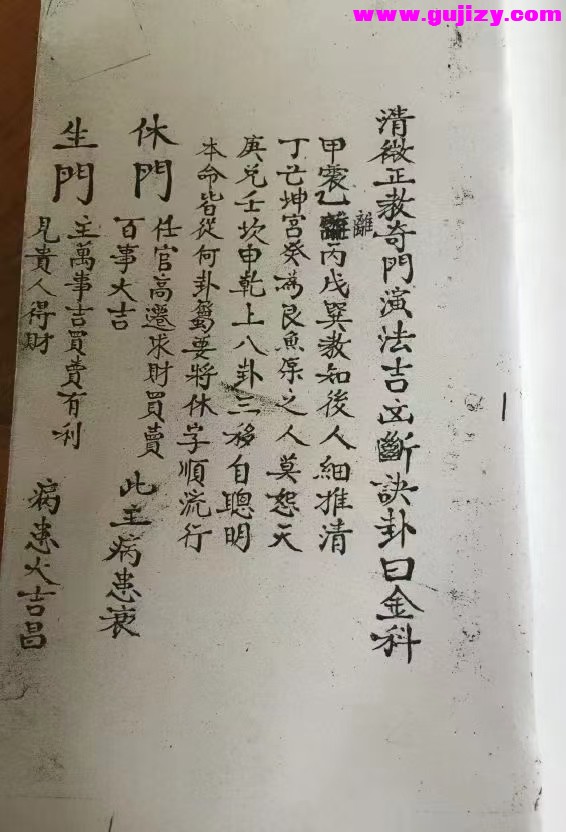 www.gujizy.com
清微正教奇門演法吉凶斷訣卦曰金科
甲震乙離丙戌巽教知後人細推清
丁亡坤宮癸為艮魚之人莫恕天
庚兌壬坎申乾上八卦三移自聰明
本命皆從何卦要將休字順流行
休門
任官高遷求財買賣
百事大吉
此主病患衰
生門
主萬事吉買賣有利
見貴人得財
病患大吉昌